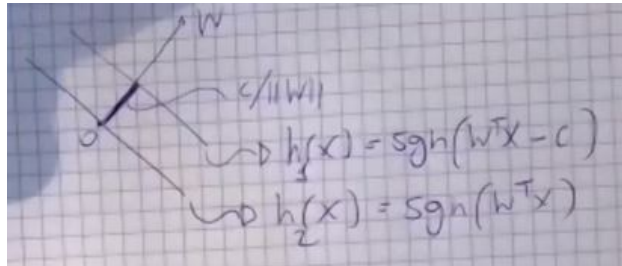 W
c/||W||
O
h₁(x) = sgn(WᵀX - c)
h₂(x) = sgn(WᵀX)